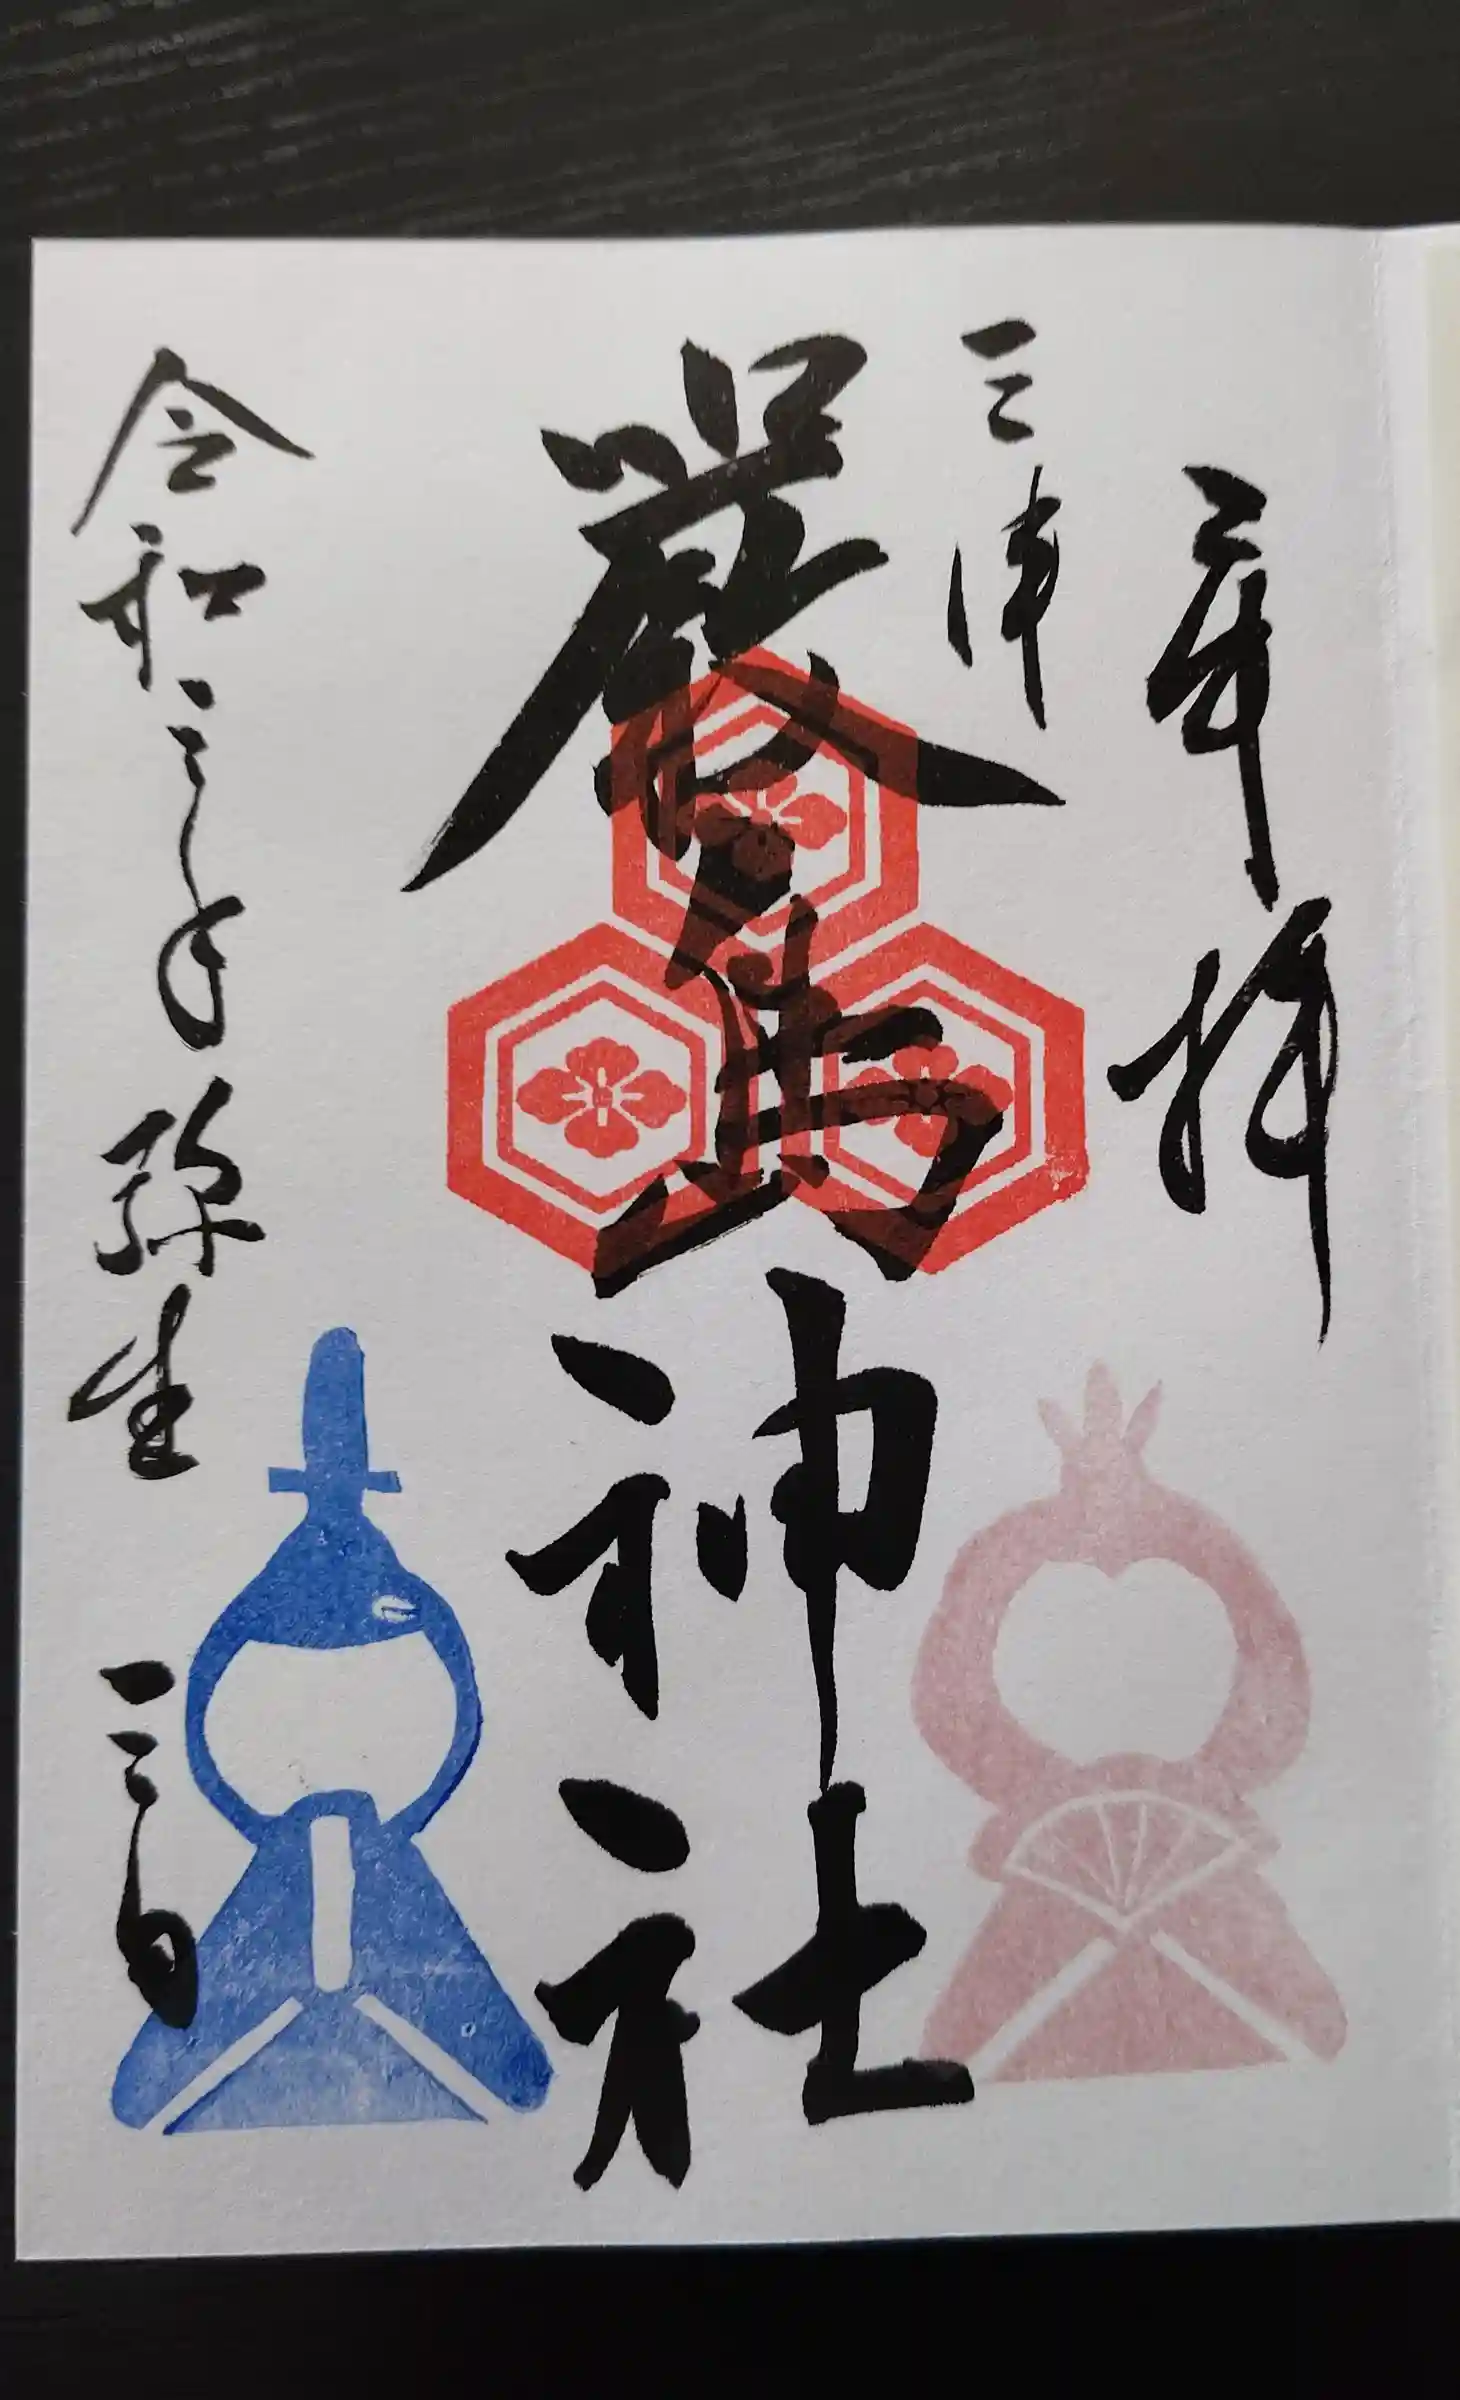 奉拝
三津
厳島神社
令和三年弥生 三日